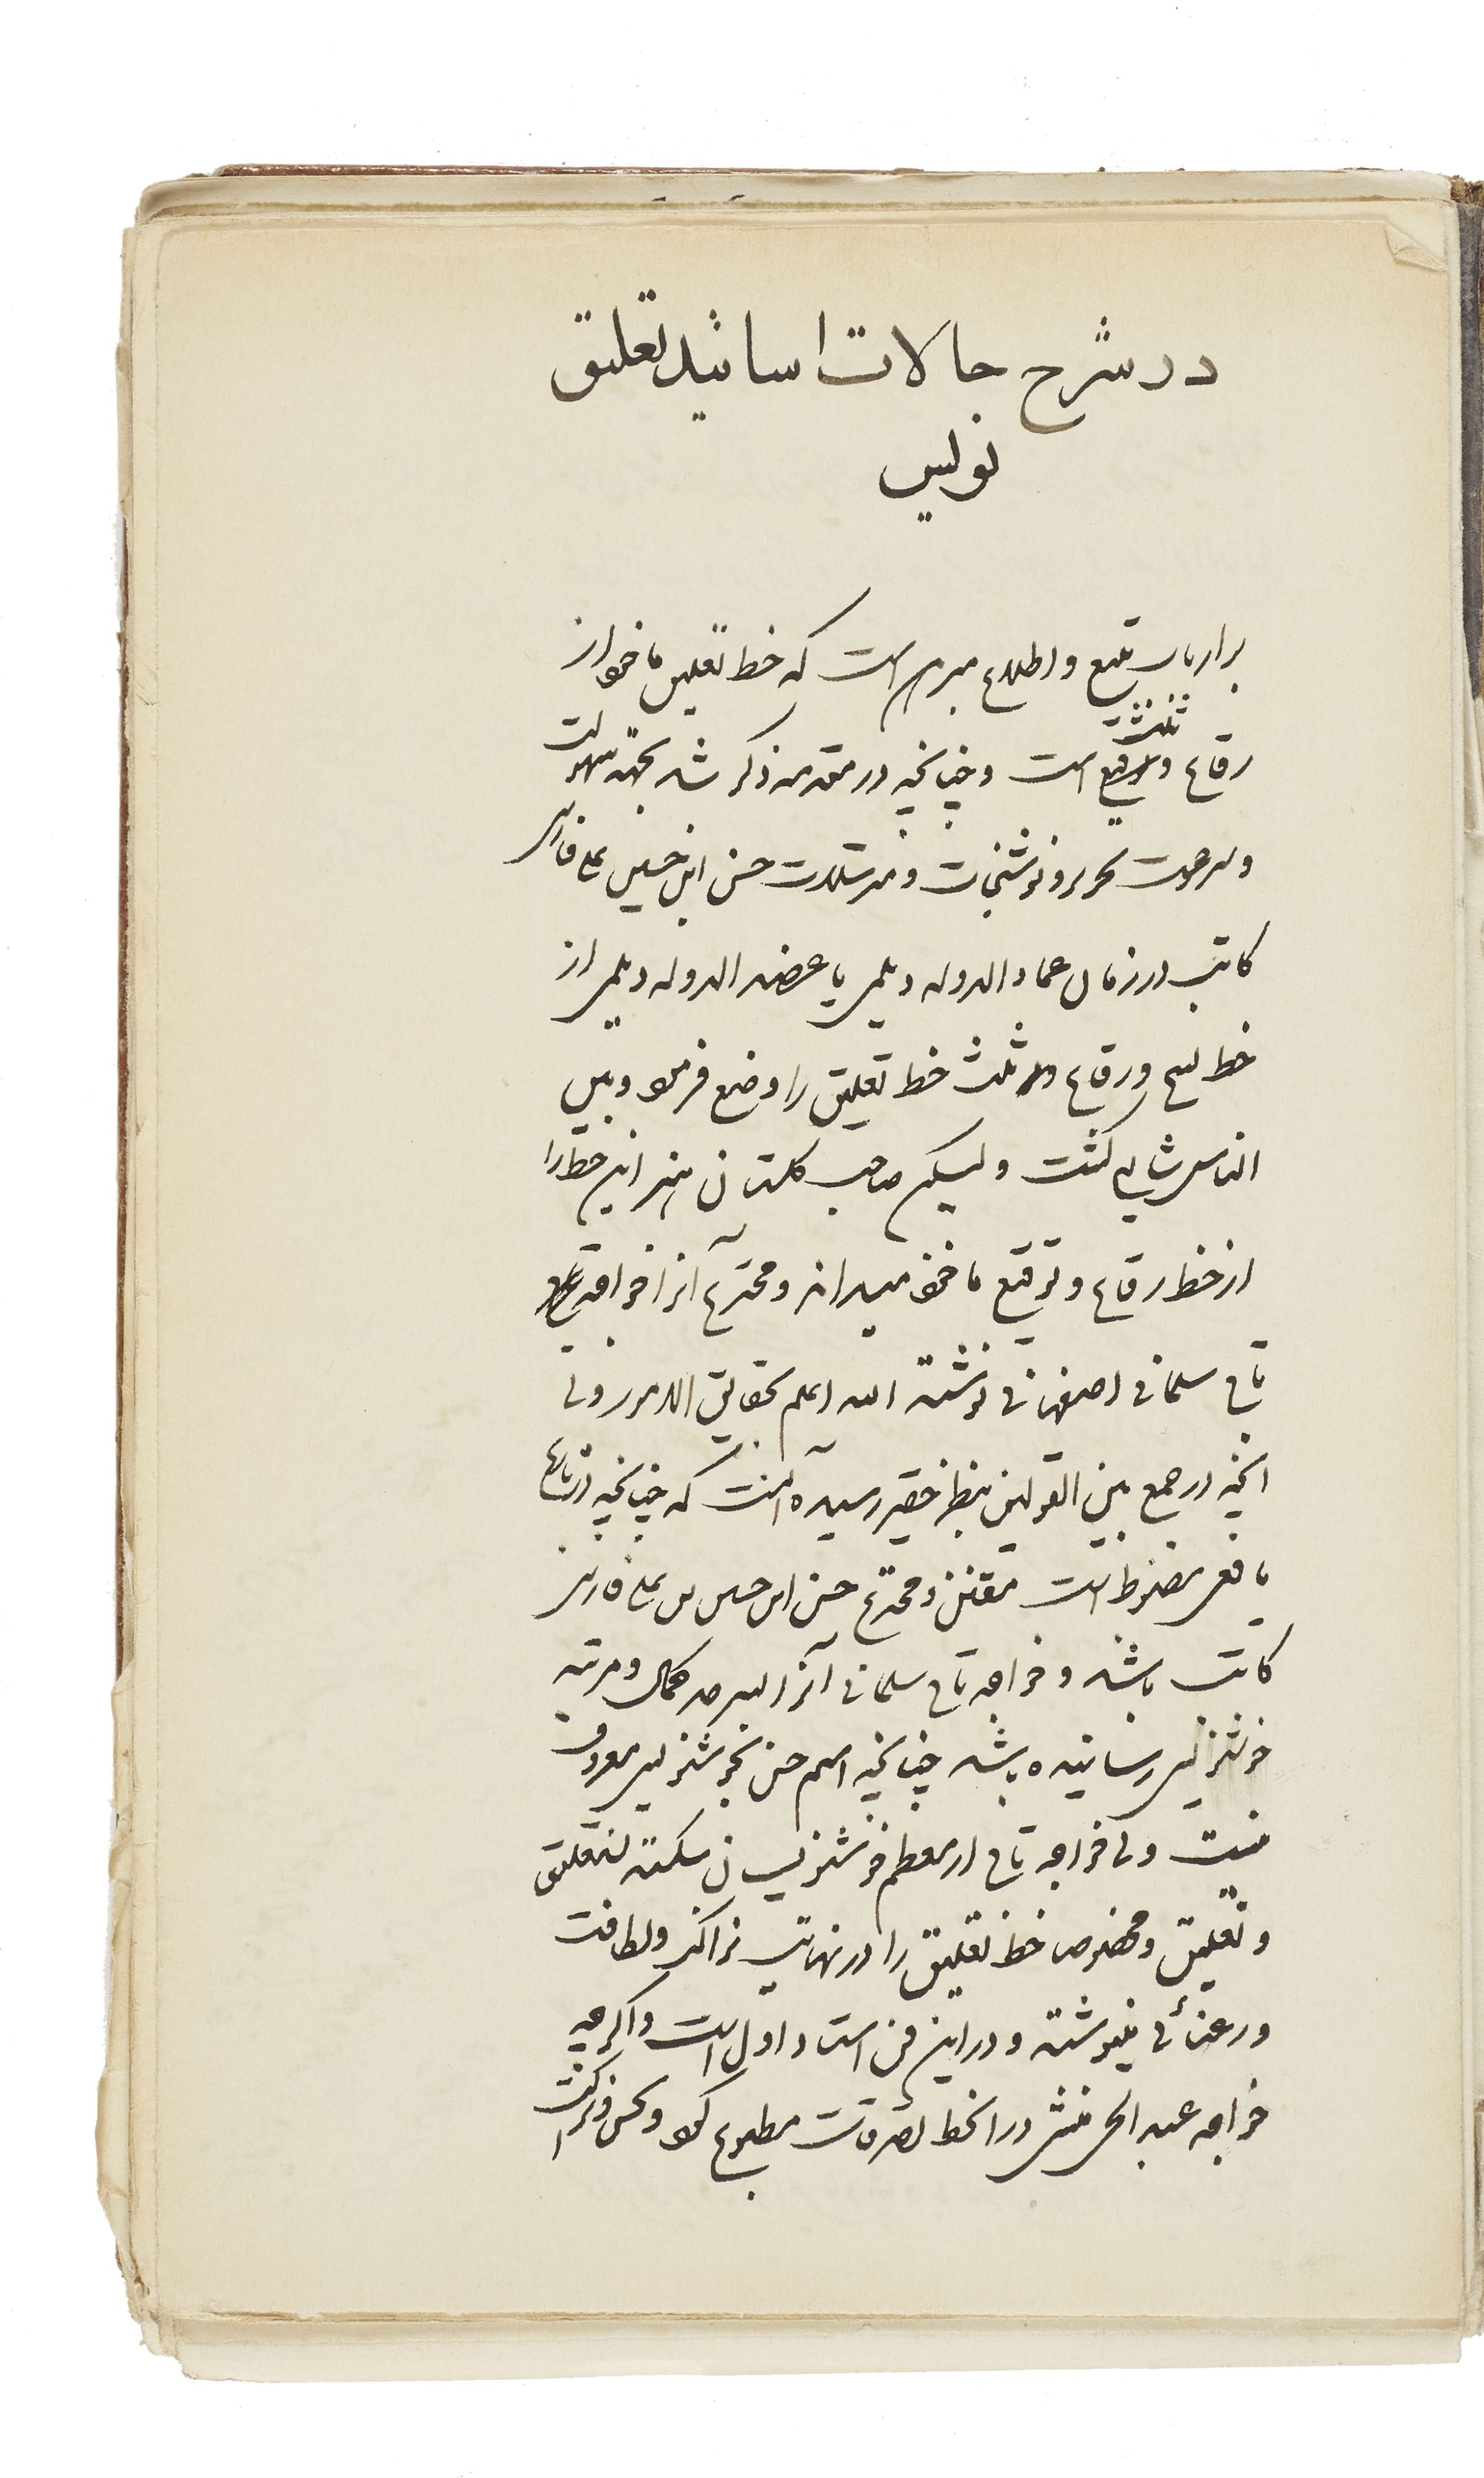 در شرح حالات اساتید تعلیق
نویس
بر ارباب تتبع و اطلاع مبرهن است که خط تعلیق ماخوذ از
ثلث
رقاع و توقیع است و چنانچه در مقدمه ذکر شد بجهة سهولت
و سرعت تحریر و نوشتجات و مراسلات حسن ابن حسین علی فارسی
کاتب در زمان عماد الدوله دیلمی یا عضد الدوله دیلمی از
خط نسخ و رقاع و ثلث خط تعلیق را وضع فرمود و بین
الناس شایع گشت ولیکن صاحب گلستان هنر این خط را
از خط رقاع و توقیع ماخوذ میداند و مخترع آنرا خواجه
تاج سلمانی اصفهانی نوشته الله اعلم بحقایق الامور ولی
آنچه در جمع بین القولین بنظر حقیر رسیده اینست که چنانچه در تاریخ
یافعی مضبوط است مقنن و مخترع حسن ابن حسین بن علی فارسی
کاتب باشد و خواجه تاج سلمانی آنرا بسرحد کمال و مرتبه
خوشنویسی رسانیده باشد چنانچه اسم حسن بخوشنویسی معروف
نیست ولی خواجه تاج از معظم خوشنویسان شکسته نستعلیق
و تعلیق و مخصوصا خط تعلیق را در نهایت نزاکت و لطافت
و رعنائی مینوشته و در این فن استاد اول است و اگرچه
خواجه عبد الحی منشی در انخط تصرفات مطبوع نمود و حسن و نزاکت